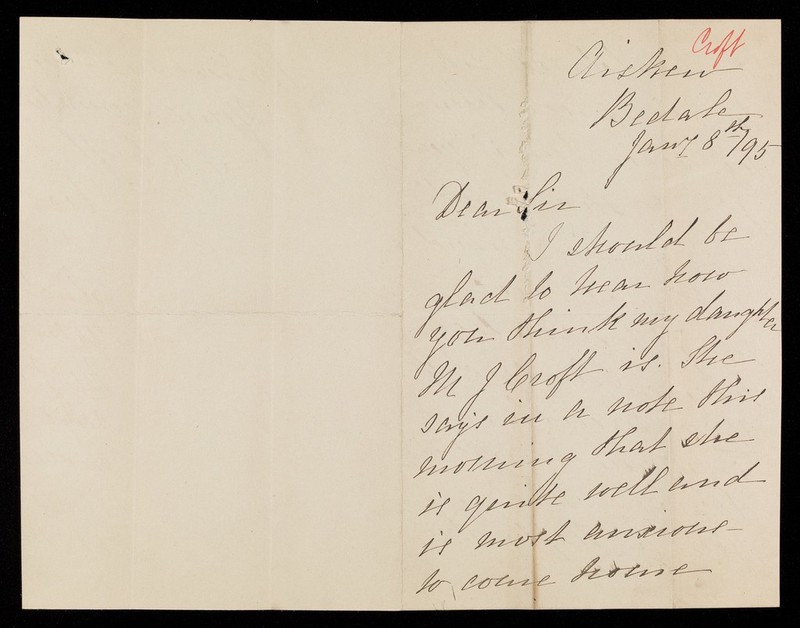 Croft
Aiskew
Bedale
Jany 8th/95
Dear Sir
I should be
glad to hear how
you think my daughter
M J Croft is. She
says in a note this
morning that she
is quite well and
is most anxious
to come home